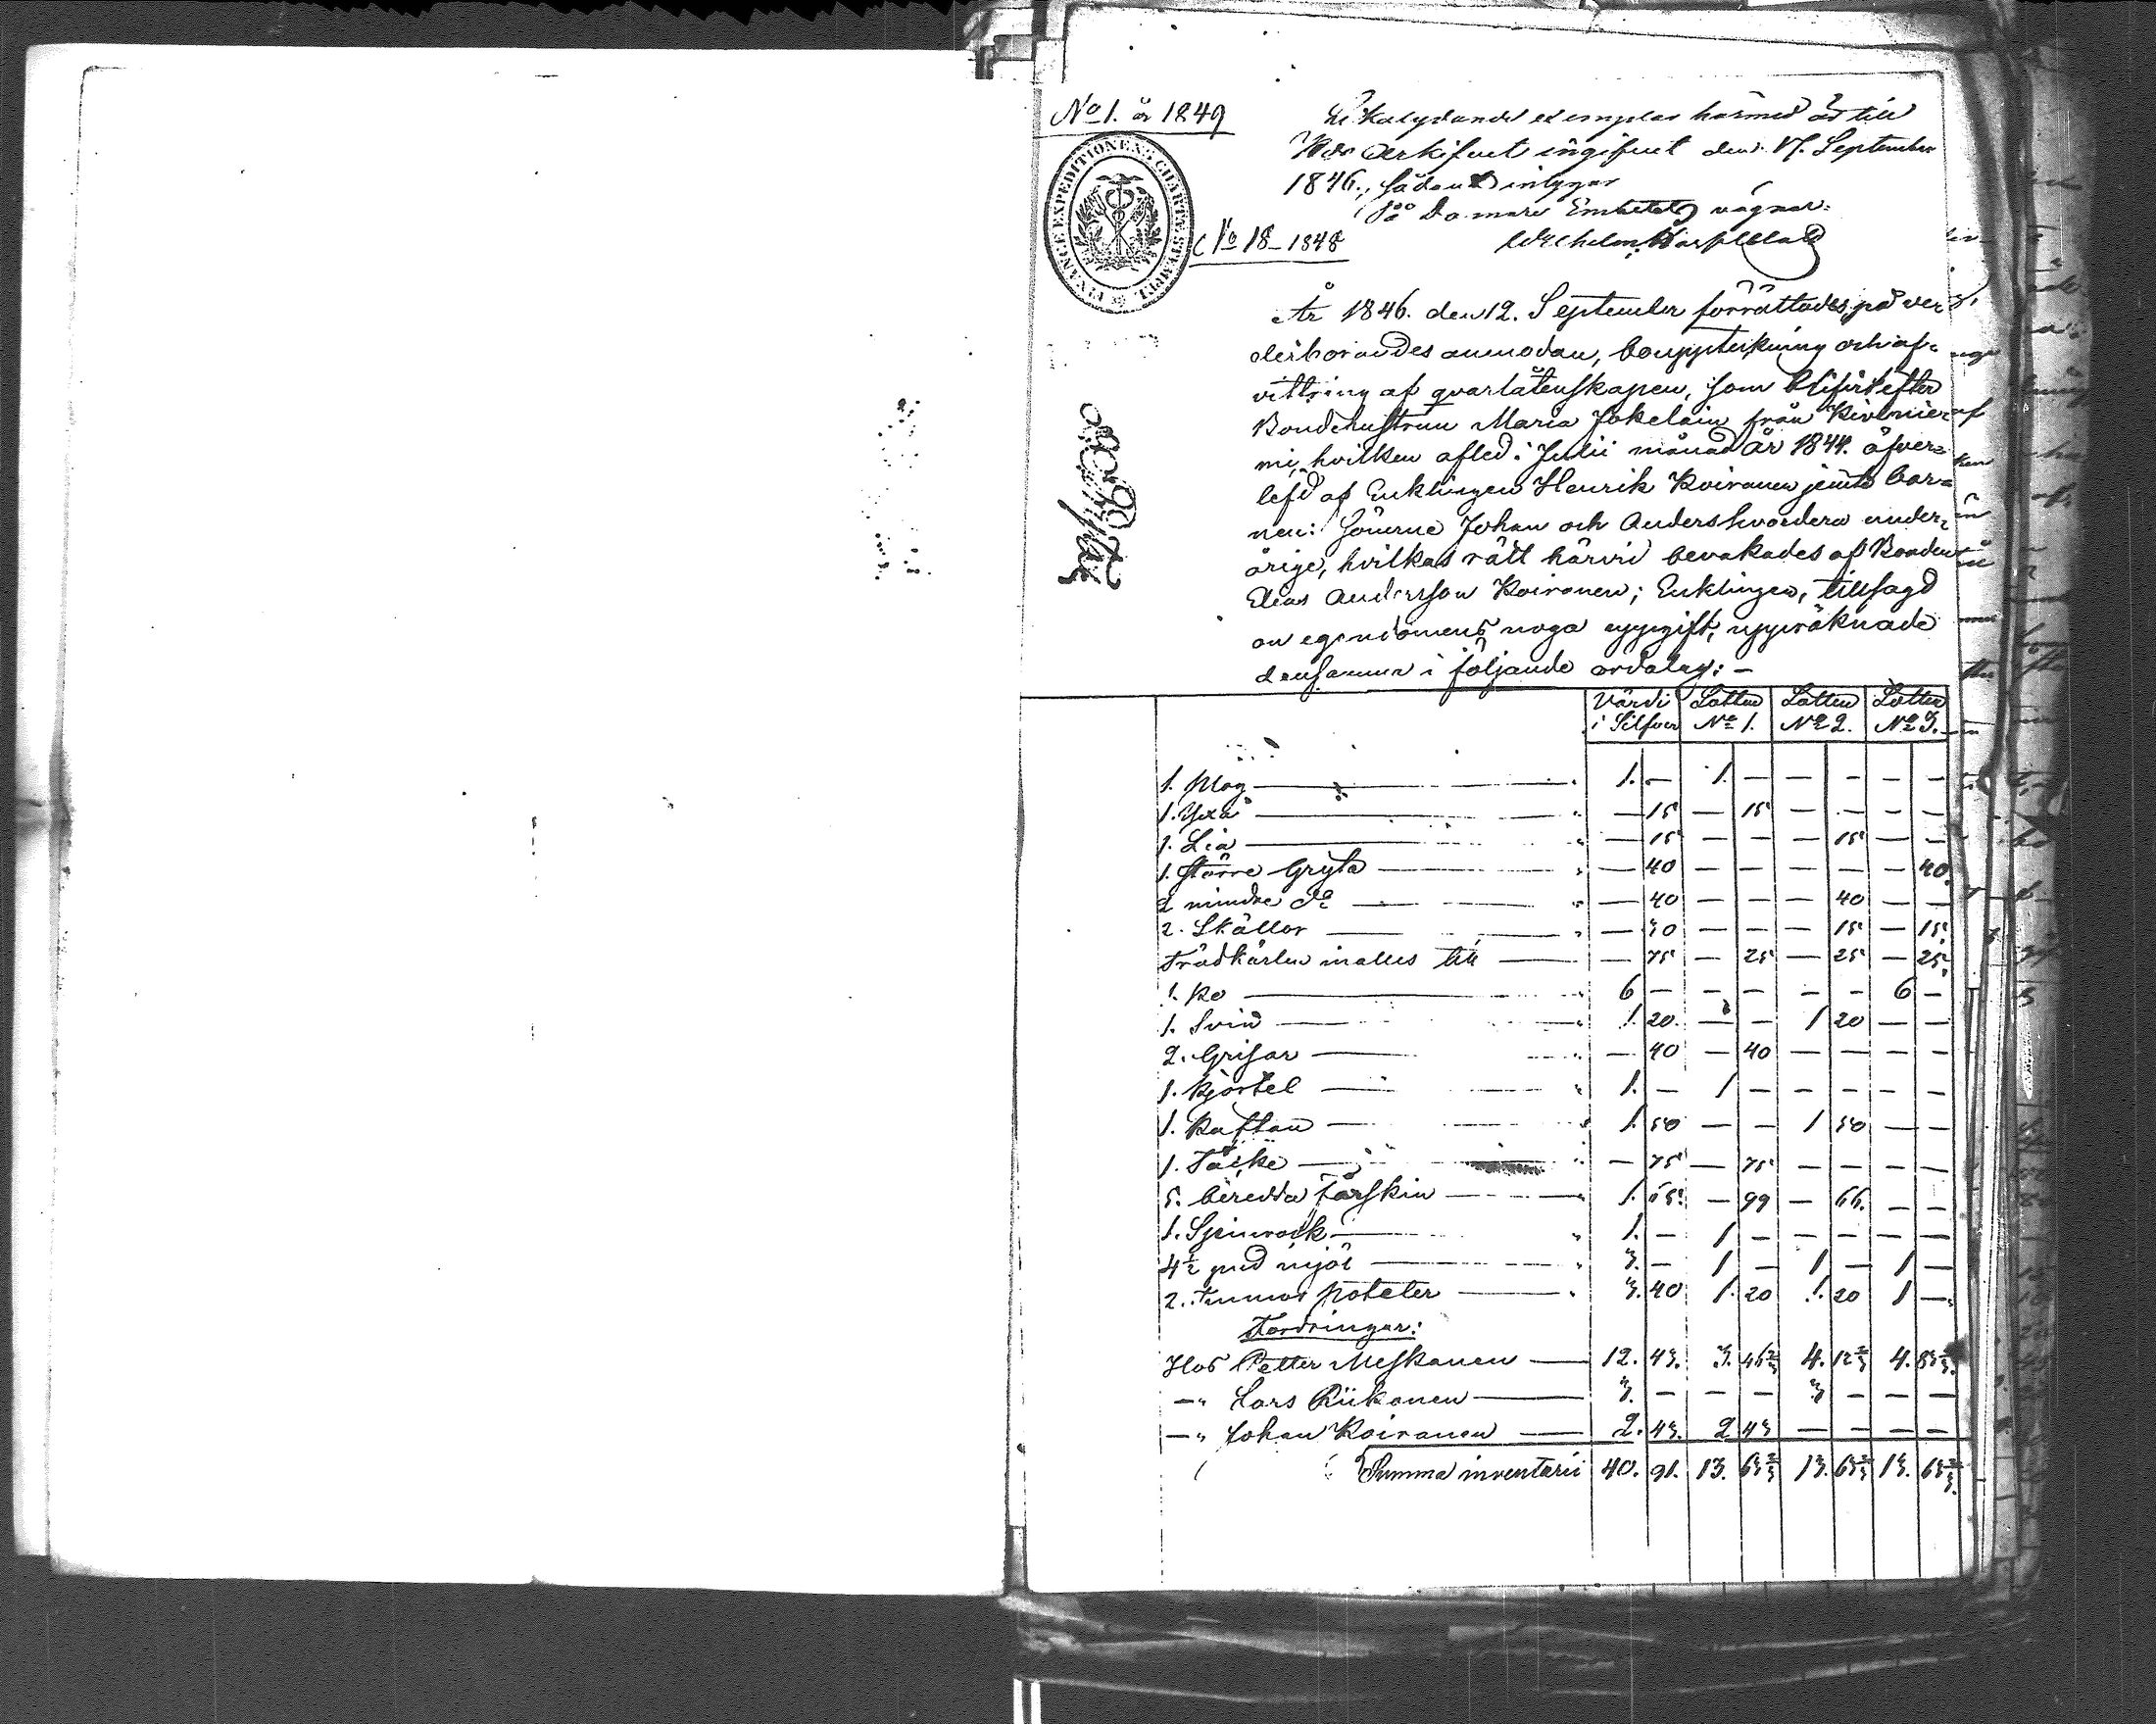 No 1. år 1849
Likalydande exemplar härmed är till
Hds Arkifvet ingifvet den 17. September
1846., sådant intygar
På Domare Embetets vägnar:
No 18 – 1848
FINANCE EXPEDITIONENS CHARTÆ STEMPEL
År 1846. den 12. September förrättades på ver-
derborandes anmodan, bouppteckning och af-
vittring af qvarlåtenskapen, som blifvit efter
Bondehustrun Maria Jokelain från Kiviniem-
mi, hvilken afled i Julii månad år 1844. öfver-
lefd af Enklingen Henrik Koiranen jemte bar-
nen: Sönerne Johan och Anders hvardera under-
årige, hvilkas rätt härvid bevakades af Bonden
Elias Andersson Koiranen; Enklingen, tillsagd
om egendomens noga uppgift, uppräknade
densamma i följande ordalag: –
Värdi i Silfver Lotten No 1. Lotten No 2. Lotten No 3.
1. Plog — 1. — 1. — — — — —
1. Yxa — — 15 — 15 — — — —
1. Lia — — 15 — — — 15 — —
1. större Gryta — — 40 — — — — — 40.
2 mindre do — — 40 — — — 40 — —
2. Skållor — — 30 — — — 15 — 15.
Trädkärlen inalles till — — 75 — 25 — 25 — 25.
1. Ko — 6 — — — — — 6 —
1. Svin — 1. 20. — — 1 20 — —
2. Grisar — — 40 — 40 — — — —
1. Kjortel — 1. — 1 — — — — —
1. Kaftan — 1. 50 — — 1 50 — —
1. Täcke — — 75 — 75 — — — —
5. beredda fårskin — 1. 65. — 99 — 66. — —
1. Spinrock — 1. — 1 — — — — —
4½ pud mjöl — 3. — 1 — 1 — 1 —
2. tunnor poteter — 3. 40 1. 20 1. 20 1 —
Fordringar:
Hos Petter Meskanen — 12. 43. 3. 46⅔ 4. 12⅔ 4. 83⅔.
— " Lars Riikonen — 3. — — — 3 — — —
— " Johan Koiranen — 2. 43. 2 43 — — — —
Summa inventarii 40. 91. 13. 63⅔ 13. 63⅔ 13. 63⅔.